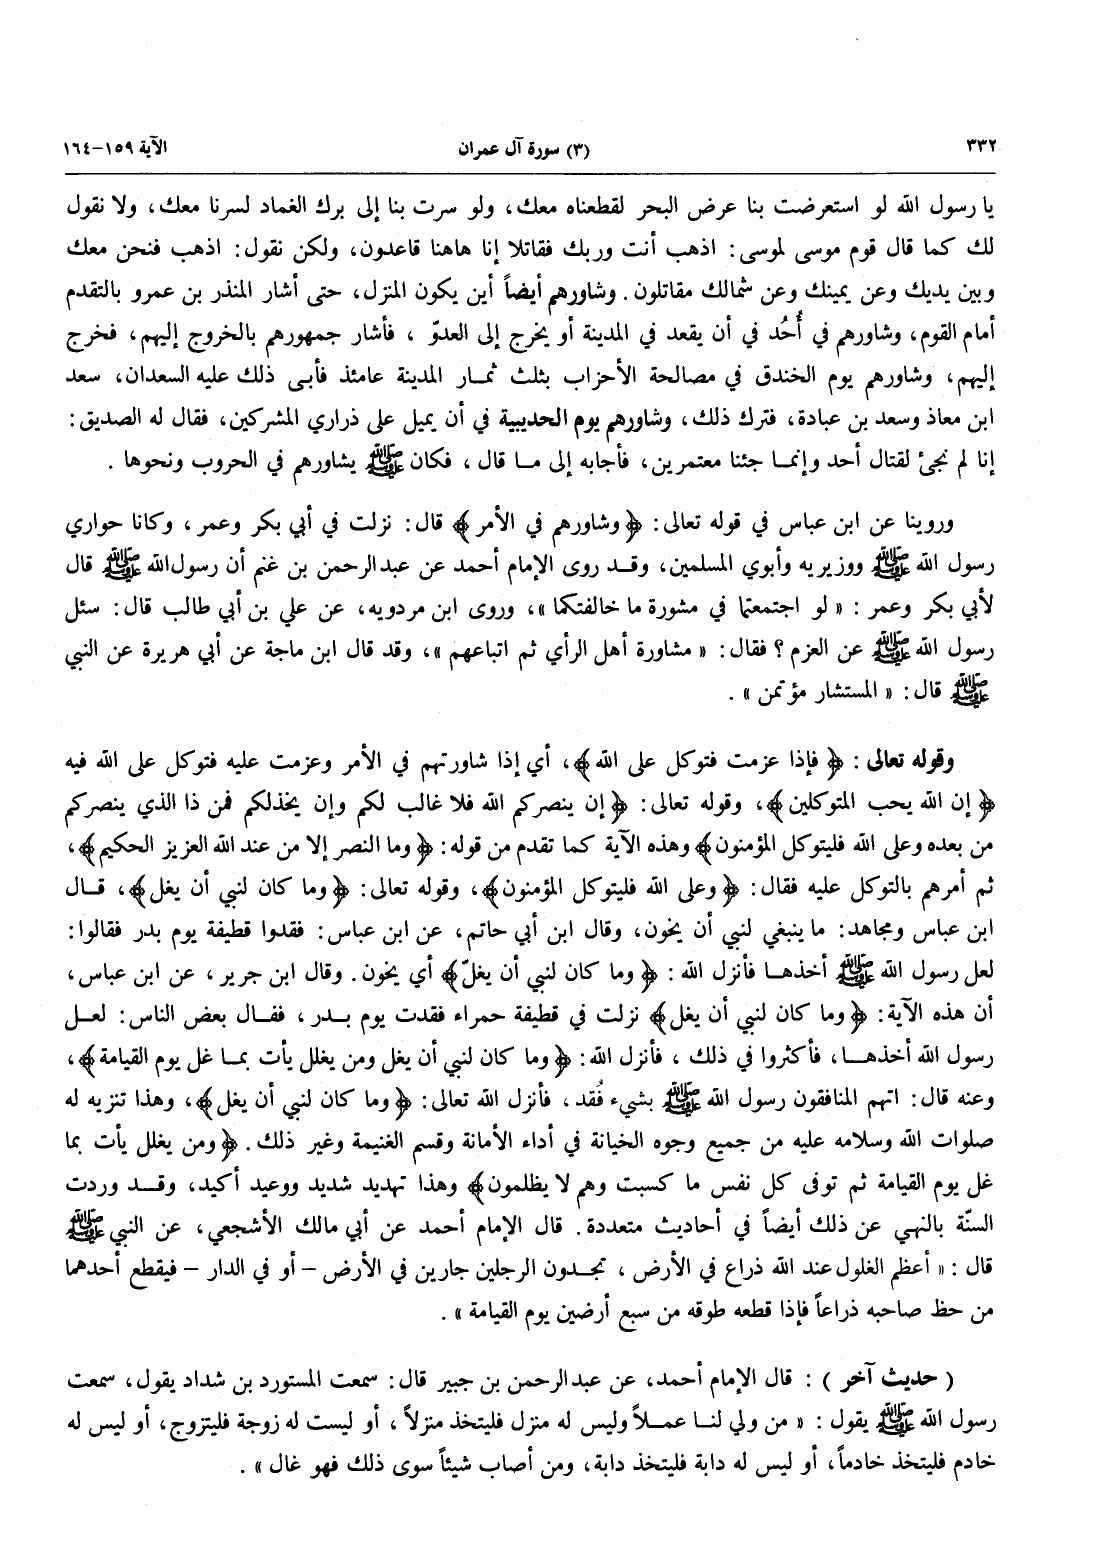 ٣٣٢ (٣) سورة آل عمران الآية ١٥٩-١٦٤
يا رسول الله لو استعرضت بنا عرض البحر لقطعناه معك، ولو سرت بنا إلى برك الغماد لسرنا معك، ولا نقول
لك كما قال قوم موسى لموسى: اذهب أنت وربك فقاتلا إنا هاهنا قاعدون، ولكن نقول: اذهب فنحن معك
وبين يديك وعن يمينك وعن شمالك مقاتلون. وشاورهم أيضاً أين يكون المنزل، حتى أشار المنذر بن عمرو بالتقدم
أمام القوم، وشاورهم في أُحُد في أن يقعد في المدينة أو يخرج إلى العدوّ ، فأشار جمهورهم بالخروج إليهم، فخرج
إليهم، وشاورهم يوم الخندق في مصالحة الأحزاب بثلث ثمار المدينة عامئذ فأبى ذلك عليه السعدان، سعد
ابن معاذ وسعد بن عبادة، فترك ذلك، وشاورهم يوم الحديبية في أن يميل على ذراري المشركين، فقال له الصديق:
إنا لم نجئ لقتال أحد وإنما جئنا معتمرين، فأجابه إلى ما قال ، فكان ﷺ يشاورهم في الحروب ونحوها .
وروينا عن ابن عباس في قوله تعالى: ﴿وشاورهم في الأمر﴾ قال: نزلت في أبي بكر وعمر ، وكانا حواري
رسول الله ﷺ ووزيريه وأبوي المسلمين، وقد روى الإمام أحمد عن عبدالرحمن بن غنم أن رسول الله ﷺ قال
لأبي بكر وعمر : « لو اجتمعتما في مشورة ما خالفتكما »، وروى ابن مردويه، عن علي بن أبي طالب قال: سئل
رسول الله ﷺ عن العزم ؟ فقال: « مشاورة أهل الرأي ثم اتباعهم »، وقد قال ابن ماجة عن أبي هريرة عن النبي
ﷺ قال: « المستشار مؤتمن » .
وقوله تعالى : ﴿ فإذا عزمت فتوكل على الله﴾، أي إذا شاورتهم في الأمر وعزمت عليه فتوكل على الله فيه
﴿ إن الله يحب المتوكلين﴾، وقوله تعالى: ﴿إن ينصركم الله فلا غالب لكم وإن يخذلكم فمن ذا الذي ينصركم
من بعده وعلى الله فليتوكل المؤمنون﴾ وهذه الآية كما تقدم من قوله: ﴿وما النصر إلا من عند الله العزيز الحكيم﴾،
ثم أمرهم بالتوكل عليه فقال: ﴿وعلى الله فليتوكل المؤمنون﴾، وقوله تعالى: ﴿وما كان لنبي أن يغل﴾، قال
ابن عباس ومجاهد: ما ينبغي لنبي أن يخون، وقال ابن أبي حاتم، عن ابن عباس: فقدوا قطيفة يوم بدر فقالوا:
لعل رسول الله ﷺ أخذها فأنزل الله : ﴿ وما كان لنبي أن يغلّ﴾ أي يخون. وقال ابن جرير ، عن ابن عباس،
أن هذه الآية: ﴿وما كان لنبي أن يغل﴾ نزلت في قطيفة حمراء فقدت يوم بدر ، فقال بعض الناس: لعل
رسول الله أخذها، فأكثروا في ذلك ، فأنزل الله: ﴿وما كان لنبي أن يغل ومن يغلل يأت بما غل يوم القيامة﴾،
وعنه قال: اتهم المنافقون رسول الله ﷺ بشيء فُقد، فأنزل الله تعالى: ﴿وما كان لنبي أن يغل﴾، وهذا تنزيه له
صلوات الله وسلامه عليه من جميع وجوه الخيانة في أداء الأمانة وقسم الغنيمة وغير ذلك. ﴿ومن يغلل يأت بما
غل يوم القيامة ثم توفى كل نفس ما كسبت وهم لا يظلمون﴾ وهذا تهديد شديد ووعيد أكيد، وقد وردت
السنّة بالنهي عن ذلك أيضاً في أحاديث متعددة. قال الإمام أحمد عن أبي مالك الأشجعي، عن النبي ﷺ
قال : « أعظم الغلول عند الله ذراع في الأرض ، تجدون الرجلين جارين في الأرض - أو في الدار - فيقطع أحدهما
من حظ صاحبه ذراعاً فإذا قطعه طوقه من سبع أرضين يوم القيامة » .
( حديث آخر ) : قال الإمام أحمد، عن عبدالرحمن بن جبير قال: سمعت المستورد بن شداد يقول، سمعت
رسول الله ﷺ يقول : « من ولي لنا عملاً وليس له منزل فليتخذ منزلاً ، أو ليست له زوجة فليتزوج، أو ليس له
خادم فليتخذ خادماً، أو ليس له دابة فليتخذ دابة، ومن أصاب شيئاً سوى ذلك فهو غال » .